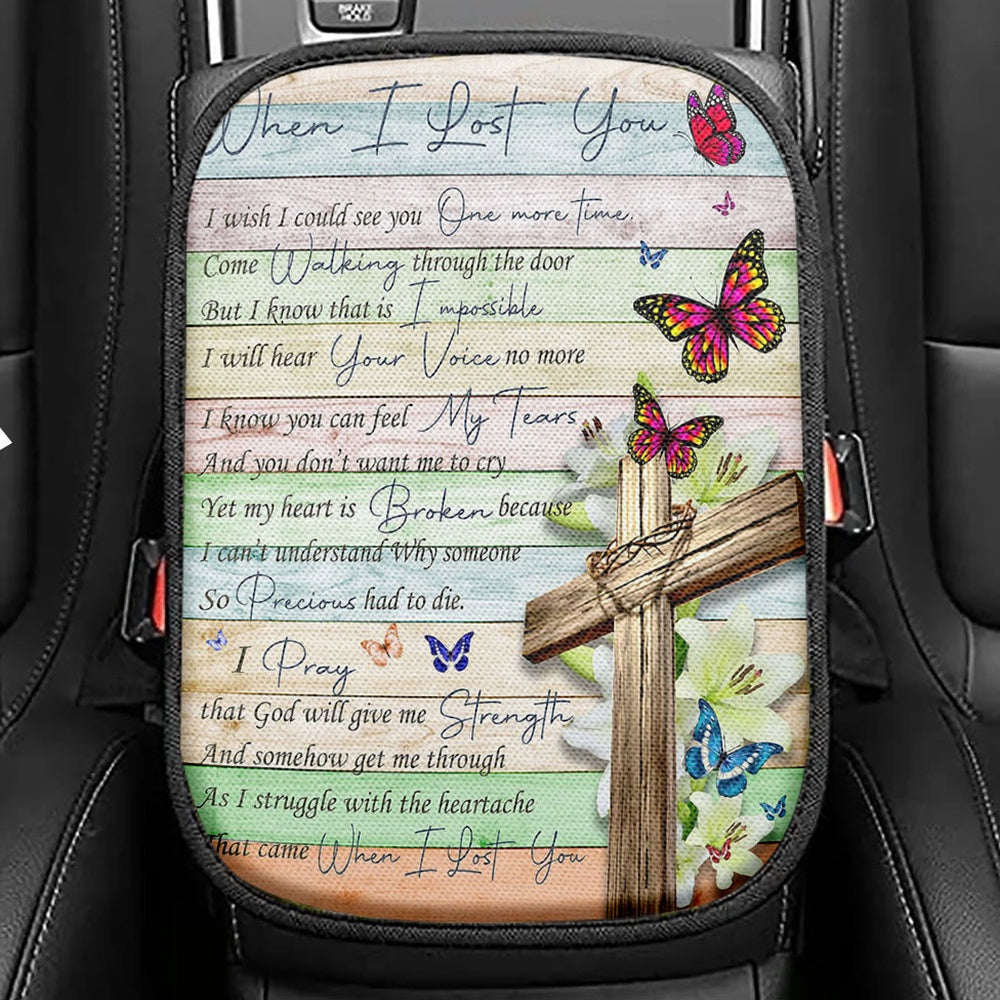 BRAKE
HOLD
When I Lost You
I wish I could see you One more time,
Come Walking through the door
But I know that is Impossible
I will hear Your Voice no more
I know you can feel My Tears
And you don't want me to cry
Yet my heart is Broken because
I can't understand Why someone
So Precious had to die.
I Pray
that God will give me Strength
And somehow get me through
As I struggle with the heartache
That came When I Lost You